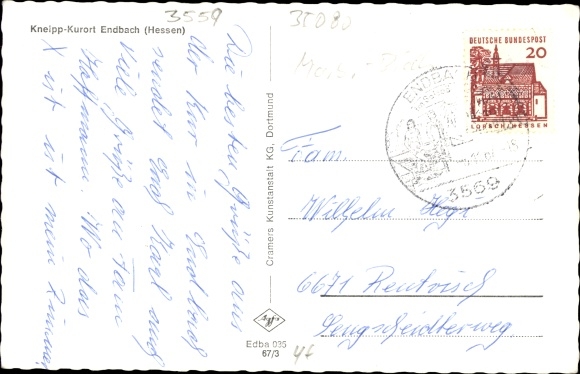 3559
35080
Kneipp-Kurort Endbach (Hessen)
Die besten Grüße aus
der Kur in Endbach
sendet Euch Karl auch
viele Grüße an Fam
Hoffmann. Wo das
X ist ist mein Zimmer
Cramers Kunstanstalt KG, Dortmund
Agfa
Edba 035
67/3
DEUTSCHE BUNDESPOST
20
LORSCH/HESSEN
ENDBA
3569
Fam.
Wilhelm
6671 Rentrisch
Lengscheidterweg